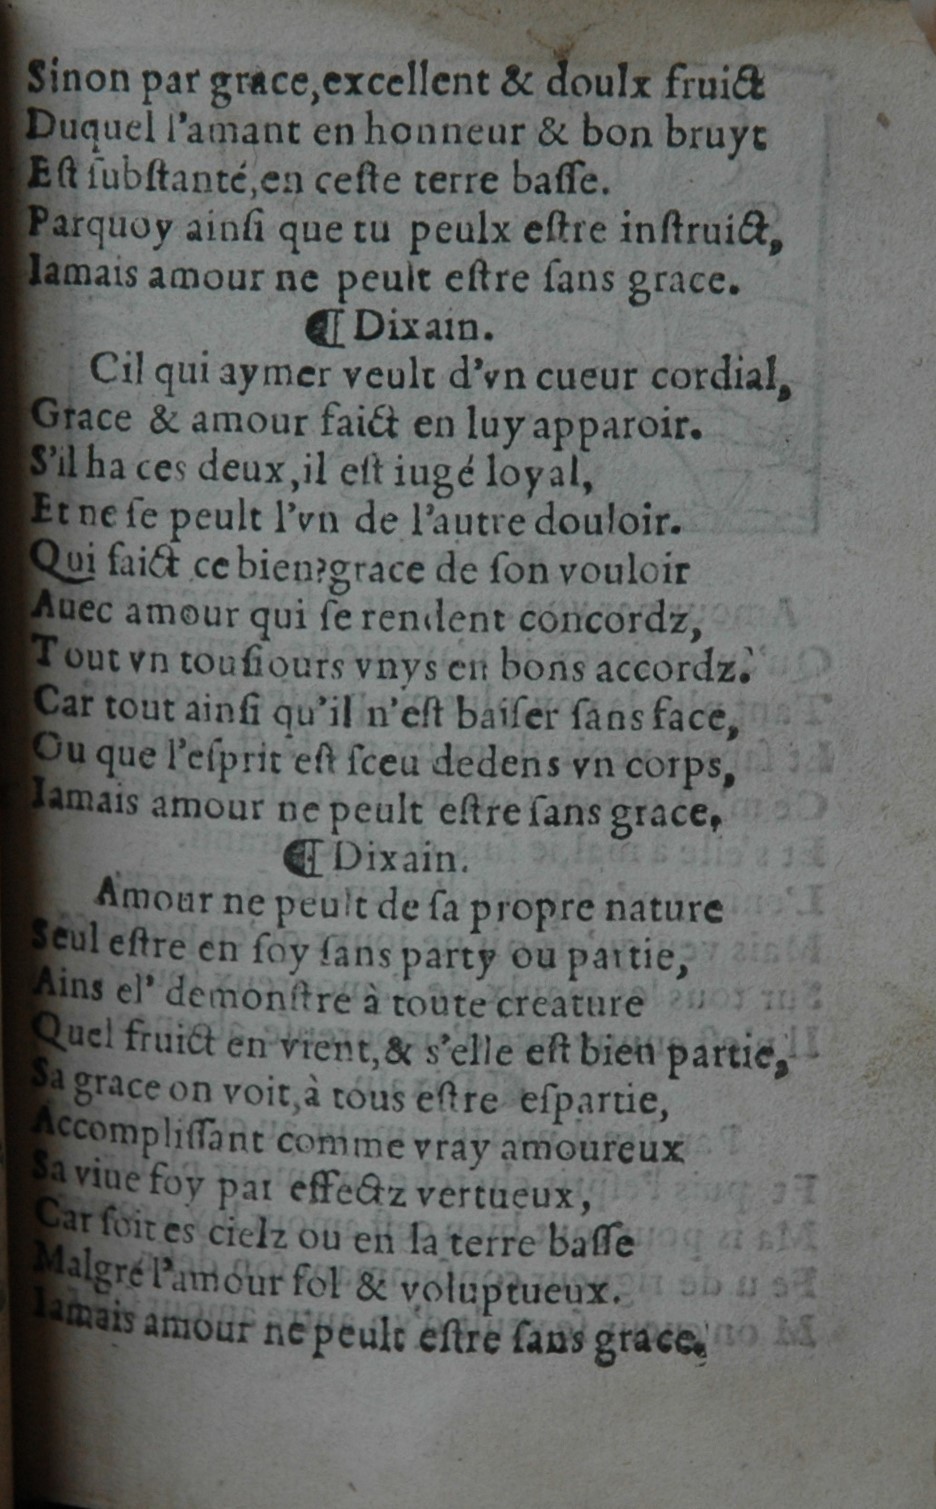 Sinon par grace,excellent & doulx fruict
Duquel l'amant en honneur & bon bruyt
Eſt ſubſtanté,en ceſte terre baſſe.
Parquoy ainſi que tu peulx eſtre inſtruict,
Iamais amour ne peult eſtre ſans grace.
¶ Dixain.
Cil qui aymer veult d'vn cueur cordial,
Grace & amour faict en luy apparoir.
S'il ha ces deux,il eſt iugé loyal,
Et ne ſe peult l'vn de l'autre douloir.
Qui faict ce bien?grace de ſon vouloir
Auec amour qui ſe rendent concordz,
Tout vn touſiours vnys en bons accordz.
Car tout ainſi qu'il n'eſt baiſer ſans face,
Ou que l'eſprit eſt ſceu dedens vn corps,
Iamais amour ne peult eſtre ſans grace,
¶ Dixain.
Amour ne peult de ſa propre nature
Seul eſtre en ſoy ſans party ou partie,
Ains el' demonſtre à toute creature
Quel fruict en vient,& s'elle eſt bien partie,
Sa grace on voit,à tous eſtre eſpartie,
Accompliſſant comme vray amoureux
Sa viue foy par effectz vertueux,
Car ſoit es cielz ou en la terre baſſe
Malgré l'amour fol & voluptueux.
Iamais amour ne peult eſtre ſans grace.